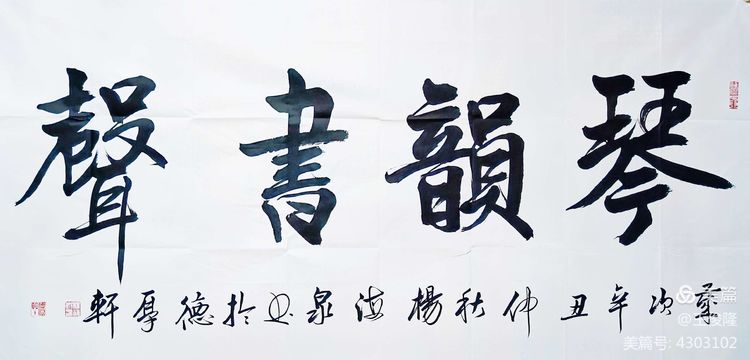 琴韻書聲
歲次辛丑仲秋楊海泉書於德厚軒
美篇
@王俊隆
美篇号: 4303102